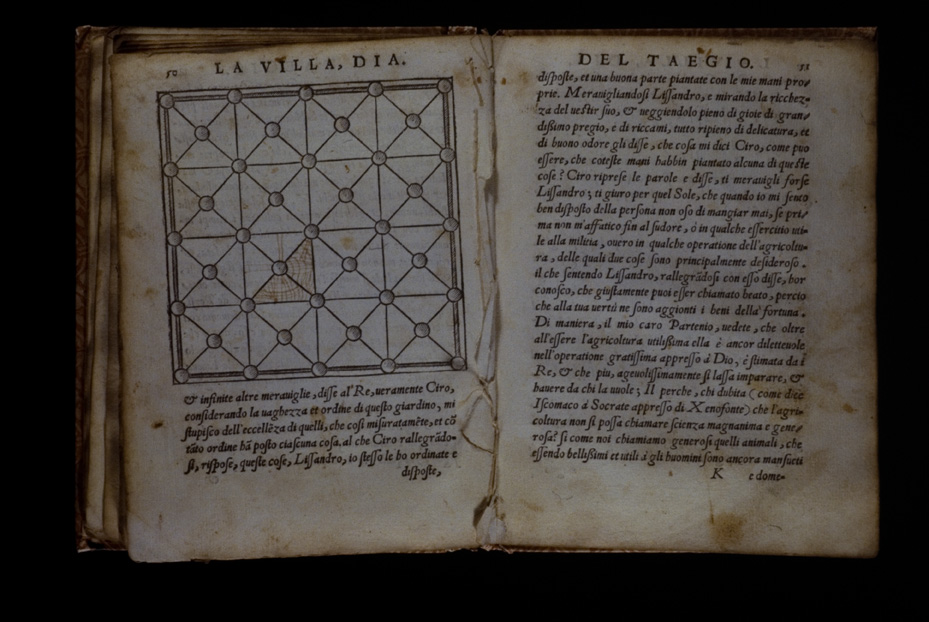 50
LA VILLA, DIA.
& infinite altre merauiglie, disse al'Re, ueramente Ciro,
considerando la uaghezza et ordine di questo giardino, mi
stupisco dell'eccellēza di quelli, che cosi misuratamēte, et cō
tāto ordine hā posto ciascuna cosa. al che Ciro rallegrādo-
si, rispose, queste cose, Lissandro, io stesso le ho ordinate e
disposte,
DEL TAEGIO.
disposte, et una buona parte piantate con le mie mani pro-
prie. Merauigliandosi Lissandro, e mirando la ricchez-
za del uestir suo, & ueggiendolo pieno di gioie di gran-
dissimo pregio, e di riccami, tutto ripieno di delicatura, et
di buono odore gli disse, che cosa mi dici Ciro, come puo
essere, che coteste mani habbin piantato alcuna di queste
cose? Ciro riprese le parole e disse, ti merauigli forse
Lissandro; ti giuro per quel Sole, che quando io mi sento
ben disposto della persona non oso di mangiar mai, se pri-
ma non m'affatico fin al sudore, ò in qualche essercitio uti-
le alla militia, ouero in qualche operatione dell'agricoltu-
ra, delle quali due cose sono principalmente desideroso.
il che sentendo Lissandro, rallegrādosi con esso disse, hor
conosco, che giustamente puoi esser chiamato beato, percio
che alla tua uertù ne sono aggionti i beni della fortuna.
Di maniera, il mio caro Partenio, uedete, che oltre
all'essere l'agricoltura utilissima ella è ancor diletteuole
nell'operatione gratissima appresso à Dio, è stimata da i
Re, & che piu, ageuolissimamente si lassa imparare, &
hauere da chi la uuole; Il perche, chi dubita (come dice
Iscomaco à Socrate appresso di Xenofonte) che l'agri-
coltura non si possa chiamare scienza magnanima e gene-
rosa? si come noi chiamiamo generosi quelli animali, che
essendo bellissimi et utili à gli huomini sono ancora mansueti
K e dome-